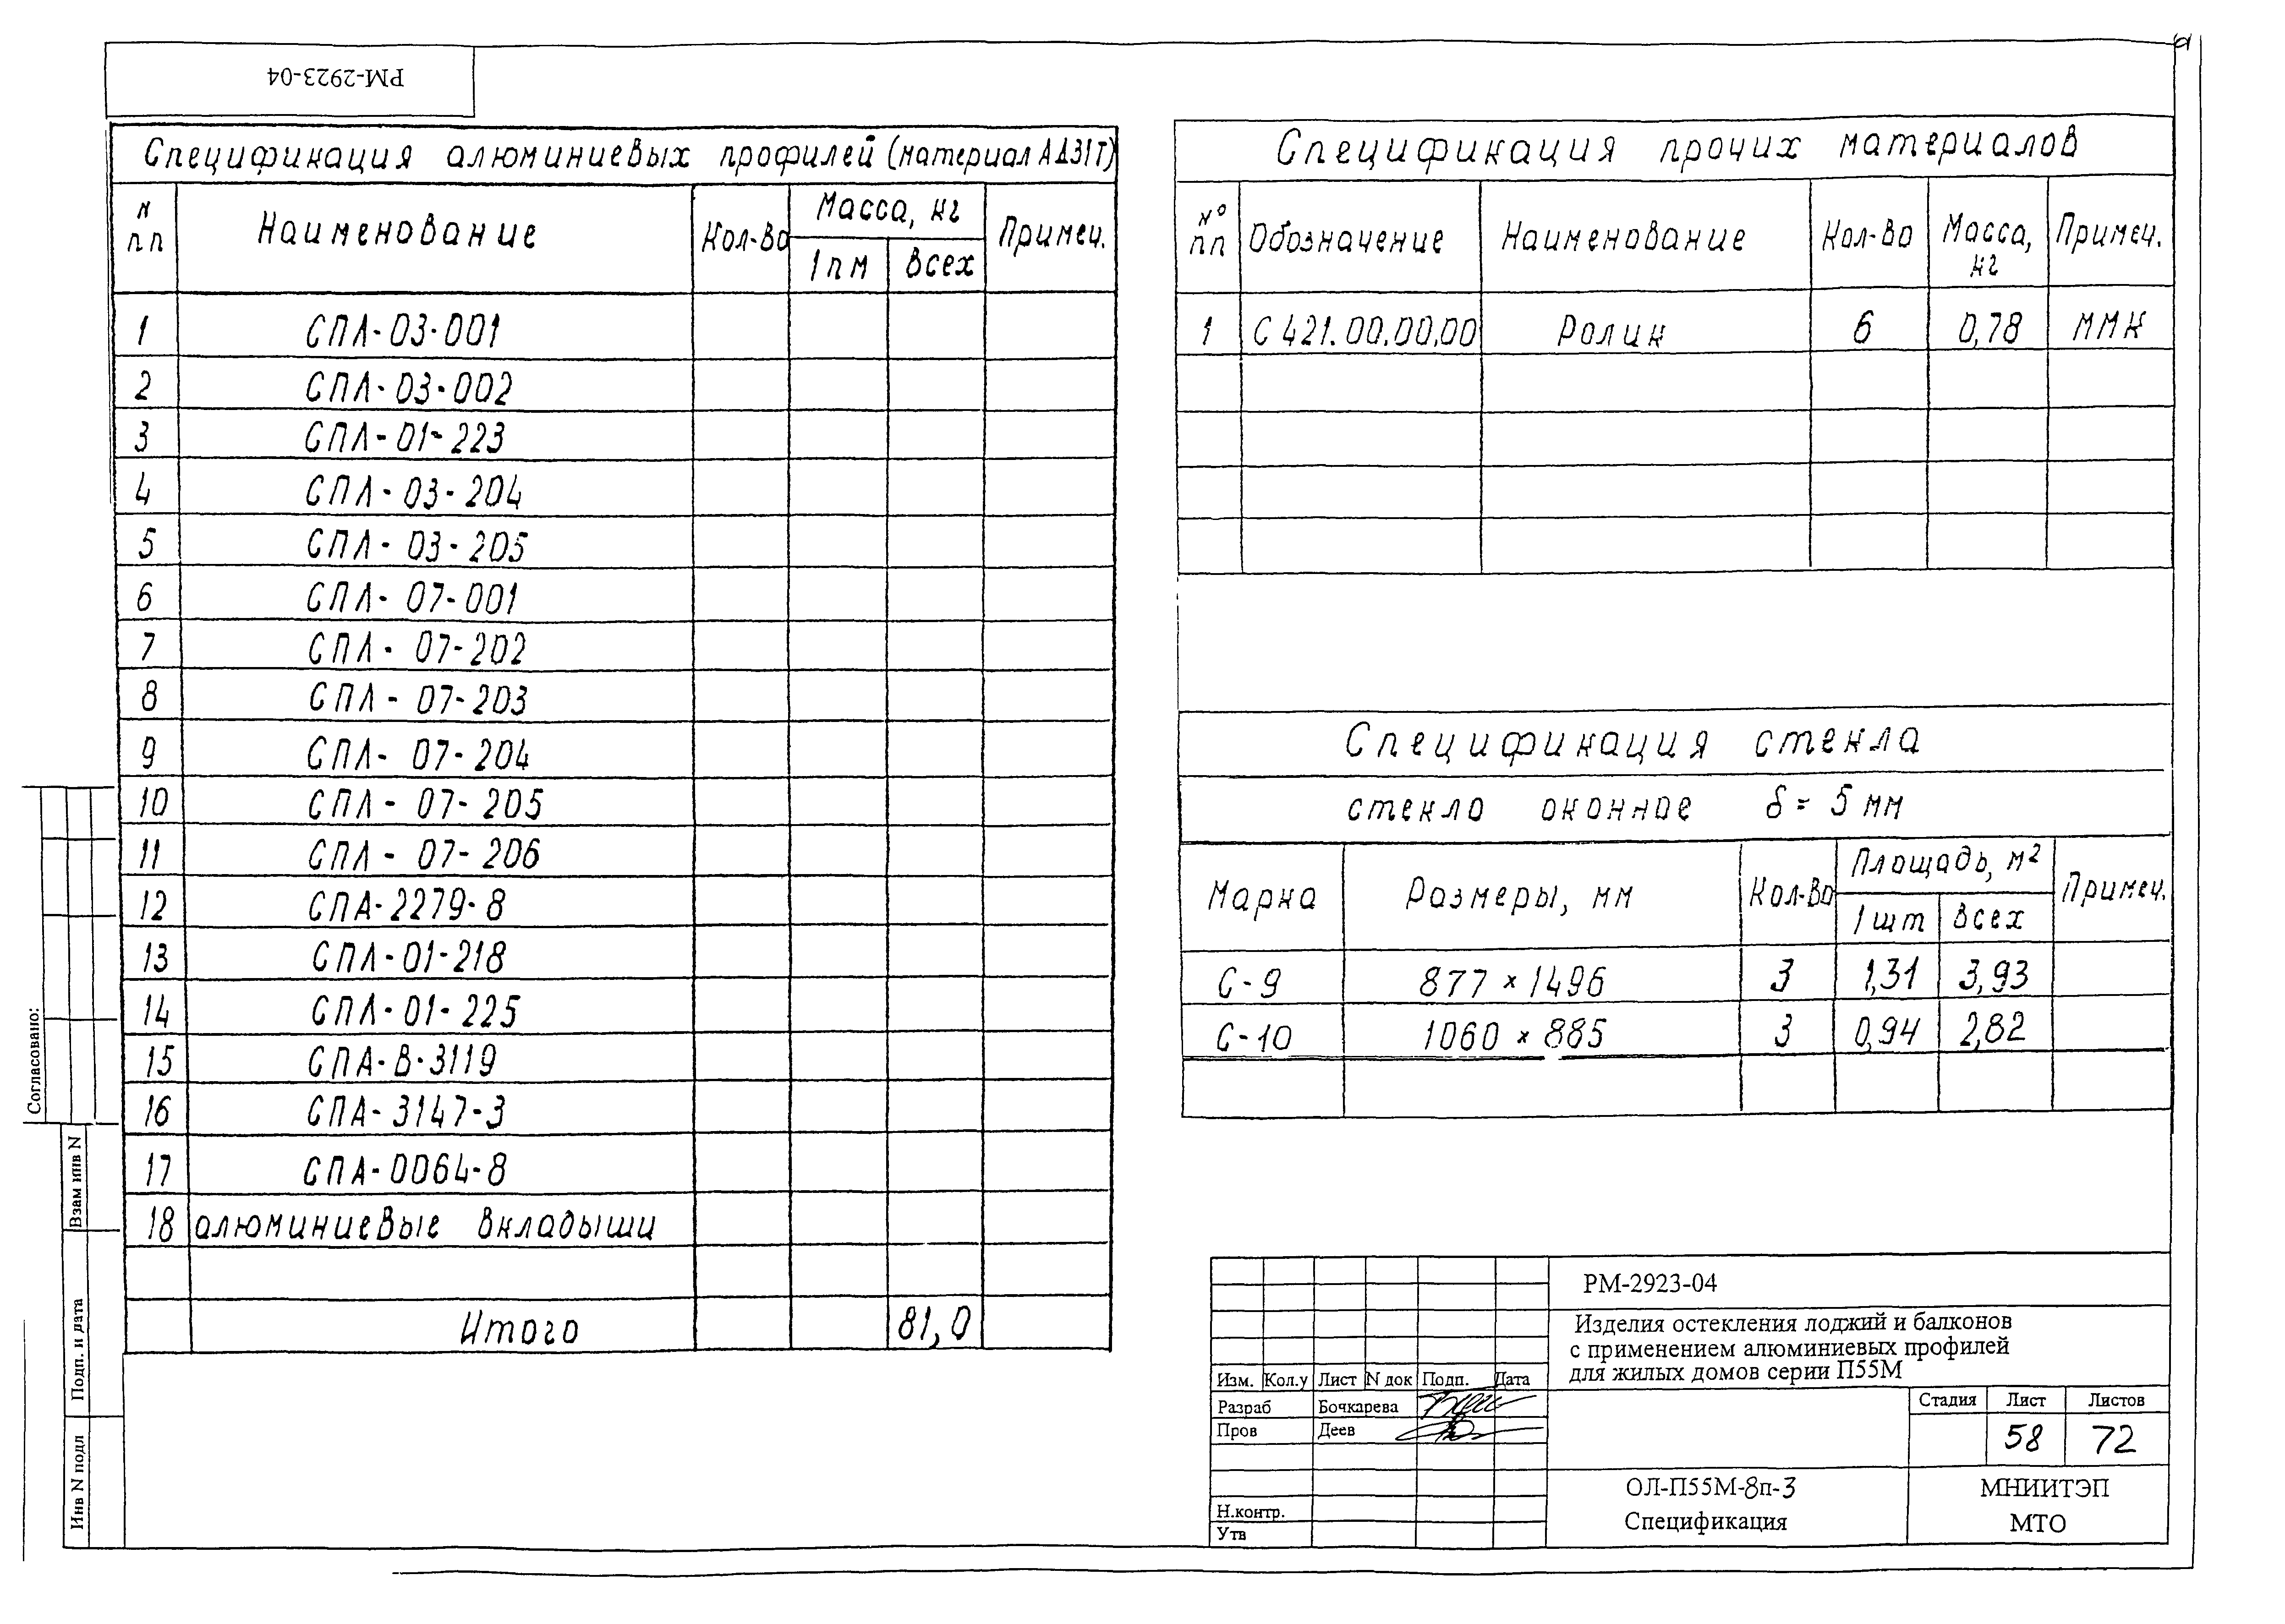 РМ-2923-04
Спецификация алюминиевых профилей (материал АД31Т)
N пп Наименование Кол-во Масса, кг Примеч.
1пм всех
1 СПЛ-03-001
2 СПЛ-03-002
3 СПЛ-01-223
4 СПЛ-03-204
5 СПЛ-03-205
6 СПЛ-07-001
7 СПЛ-07-202
8 СПЛ-07-203
9 СПЛ-07-204
10 СПЛ-07-205
11 СПЛ-07-206
12 СПА-2279-8
13 СПЛ-01-218
14 СПЛ-01-225
15 СПА-В-3119
16 СПА-3147-3
17 СПА-0064-8
18 алюминиевые вкладыши
Итого 81,0
Спецификация прочих материалов
№ пп Обозначение Наименование Кол-во Масса, кг Примеч.
1 С 421.00.00.00 Ролик 6 0,78 ММК
Спецификация стекла
стекло оконное δ = 5 мм
Марка Размеры, мм Кол-во Площадь, м² Примеч.
1шт всех
С-9 877 × 1496 3 1,31 3,93
С-10 1060 × 885 3 0,94 2,82
Согласовано:
Взам инв N
Подп. и дата
Инв N подл
РМ-2923-04
Изделия остекления лоджий и балконов
с применением алюминиевых профилей
для жилых домов серии П55М
Изм. Кол.у Лист N док Подп. Дата
Разраб Бочкарева
Пров Деев
Н.контр.
Утв
Стадия Лист Листов
58 72
ОЛ-П55М-8п-3
Спецификация
МНИИТЭП
МТО